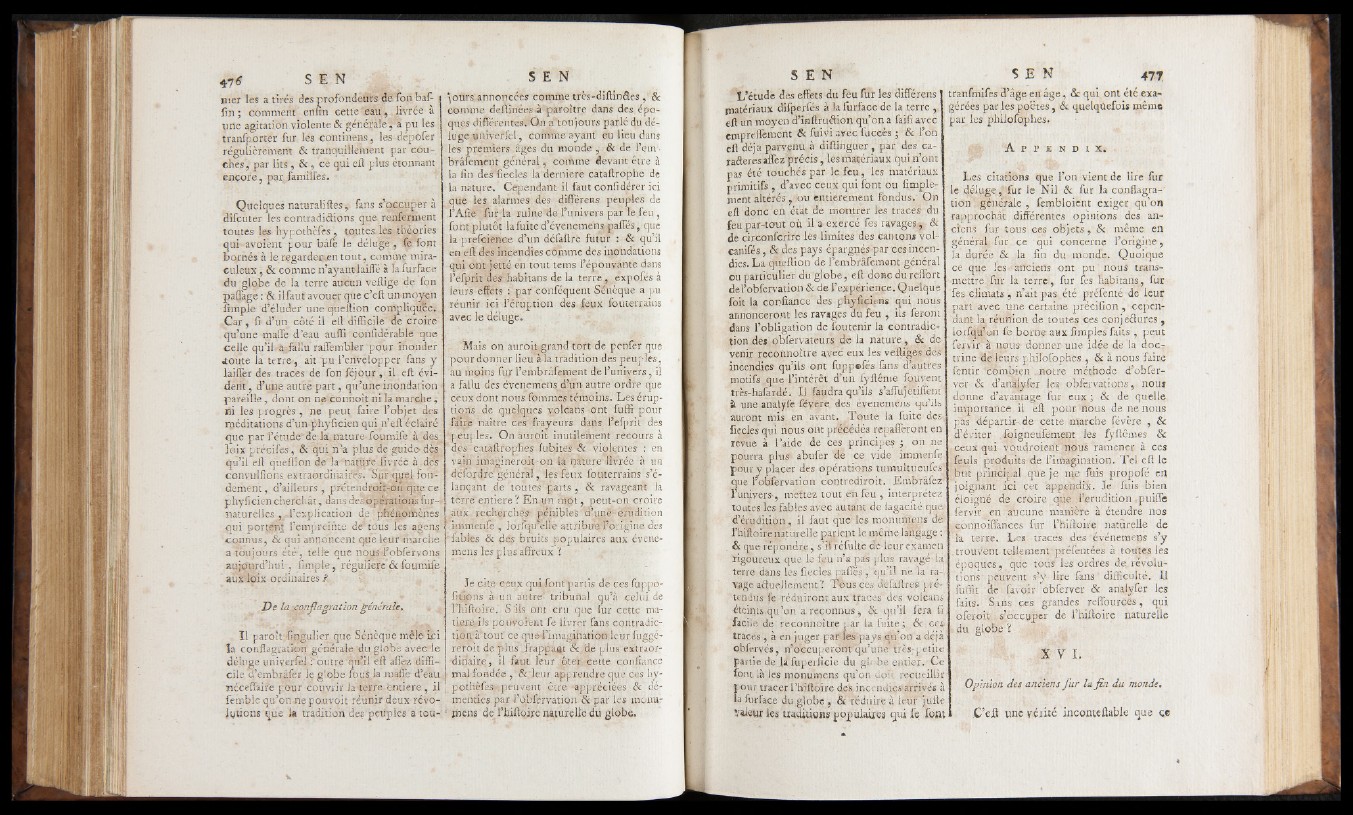 476 S E N
mer les a tirés des profondeurs de son bas-
sin ; comment enfin cette eau, livrée à
une agitation violente & générale, a pu les
transporter sur les continens, les déposer
régulièrement & tranquillement par cou-
ches, par lits, &, ce qui est plus étonnant
encore, par familles.
Quelques naturalistes, sans s'occuper à
discuter les contradictions que renferment
toutes les hypothèses, toutes les théories
qui avoient pour base le déluge, se sont
bornés à le regarder en tout, comme mira-
culeux, & comme n'ayant laissé à la surface
du globe de la terre aucun vestige de son
passage : & il faut avouer que c'est un moyen
simple d'éluder une question compliquée.
Car, si d'un côté il est difficile de croire
qu'une masse d'eau aussi considérable que
celle qu'il a fallu rassembler pour inonder
toute la terre, ait pu l'envelopper sans y
laisser des traces de son séjour, il est évi-
dent, d'une autre part, qu'une inondation
pareille, dont on ne connoît ni la marche,
ni les progrès, ne peut faire l'objet des
méditations d'un physicien qui n'est éclairé
que par l'étude de la nature soumise à des
loix précises, & qui n'a plus de guide dès
qu'il est question de la nature livrée à des
convulsions extraordinaires. Sur quel fon-
dement, d'ailleurs, prétendroit-on que ce
physicien cherchât, dans des opérations sur-
naturelles, l'explication de phénomènes
qui portent l'empreinte de tous les agens
connus, & qui annoncent que leur marche
a toujours été, telle que nous l'observons
aujourd'hui, simple, régulière & soumise
aux loix ordinaires ?
De la conflagration générale.
Il paroît singulier que Sénèque mêle ici
la conflagration générale du globe avec le
déluge universel : outre qu'il est assez diffi-
cile d'embraser le globe sous la masse d'eau
nécessaire pour couvrir la terre entiere, il
semble qu'on ne pouvoit réunir deux révo-
lutions que la tradition des peuples a tou-
S E N
jours annoncées comme très-distinctes, &
comme destinées à paroître dans des épo-
ques différentes. On a toujours parlé du dé-
luge universel, comme ayant eu lieu dans
les premiers âges du monde, & de l'em-
brâsement général, comme devant être à
la fin des siecles la derniere catastrophe de
la nature. Cependant il faut considérer ici
que les alarmes des différens peuples de
l'Asie sur la ruine de l'univers par le feu,
sont plutôt la suite d'évenemens passés, que
la prescience d'un désastre futur : & qu'il
en est des incendies comme des inondations
qui ont jetté en tout tems l'épouvante dans
l'esprit des habitans de la terre, exposés à
leurs effets ; par conséquent Sénèque a pu
réunir ici l'éruption des feux souterrains
avec le déluge.
Mais on auroit grand tort de penser que
pour donner lieu à la tradition des peuples,
au moins sur l'embrâsement de l'univers, il
a fallu des évenemens d'un autre ordre que
ceux dont nous sommes témoins. Les érup-
tions de quelques volcans ont suffi pour
faire naître ces frayeurs dans l'esprit des
peuples. On auroit inutilement recours à
des catastrophes subites & violentes : en
vain imagineroit-on la nature livrée à un
désordre général, les feux souterrains s'é-
lançant de toutes parts, & ravageant la
terre entiere ? En un mot, peut-on croire
aux recherches pénibles d'une érudition
immense, lorsqu'elle attribue l'origine des
fables & des bruits populaires aux évene-
mens les plus affreux ?
Je cite ceux qui sont partis de ces suppo-
sitions à un autre tribunal qu'à celui de
l'histoire. S'ils ont cru que sur cette ma-
tiere ils pouvoient se livrer sans contradic-
tion à tout ce que l'imagination leur suggé-
reroit de plus frappant & de plus extraor-
dinaire, il faut leur ôter cette confiance
mal fondée, & leur apprendre que ces hy-
pothèses peuvent être appréciées & dé-
menties par l'observation & par les monu-
mens de l'histoire naturelle du globe.
S E N
L'étude des effets du feu sur les différens
matériaux dispersés à la surface de la terre,
est un moyen d'instruction qu'on a saisi avec
empressement & suivi avec succès ; & l'on
est déja parvenu à distinguer, par des ca-
racteres assez précis, les matériaux qui n'ont
pas été touchés par le feu, les matériaux
primitifs, d'avec ceux qui sont ou simple-
ment altérés, ou entierement fondus. On
est donc en état de montrer les traces du
feu par-tout où il a exercé ses ravages, &
de circonscrire les limites des cantons vol-
canisés, & des pays épargnés par ces incen-
dies. La question de l'embrâsement général
ou particulier du globe, est donc du ressort
de l'observation & de l'expérience. Quelque
soit la confiance des physiciens qui nous
annonceront les ravages du feu, ils seront
dans l'obligation de soutenir la contradic-
tion des observateurs de la nature, & de
venir reconnoître avec eux les vestiges des
incendies qu'ils ont supposés sans d'autres
motifs que l'intérêt d'un système souvent
très-hasardé. Il faudra qu'ils s'assujettissent
à une analyse sévere des évenemens qu'ils
auront mis en avant. Toute la suite des
siecles qui nous ont précédés repasseront en
revue à l'aide de ces principes ; on ne
pourra plus abuser de ce vide immense
pour y placer des opérations tumultueuses
que l'observation contrediroit. Embrâsez
l'univers, mettez tout en feu, interpretez
toutes les fables avec autant de sagacité que
d'érudition, il faut que les monumens de
l'histoire naturelle parlent le même langage :
& que répondre, s'il résulte de leur examen
rigoureux que le feu n'a pas plus ravagé la
terre dans les siecles passés, qu'il ne la ra-
vage actuellement ? Tous ces désastres pré-
tendus se réduiront aux traces des volcans
éteints qu'on a reconnus, & qu'il sera si
facile de reconnoître par la suite ; & ces
traces, à en juger par les pays qu'on a déjà
observés, n'occuperont qu'une très-petite
partie de la superficie du globe entier. Ce
sont là les monumens qu'on doit recueillir
pour tracer l'histoire des incendies arrivés à
la surface du globe, & réduire à leur juste
valeur les traditions populaires qui se sont
S E N 477
transmises d'âge en âge, & qui ont été exa-
gérées par les poëtes, & quelquefois même
par les philosophes.
A P P E N D I X.
Les citations que l'on vient de lire sur
le déluge, sur le Nil & sur la conflagra-
tion générale, sembloient exiger qu'on
rapprochât différentes opinions des an-
ciens sur tous ces objets, & même en
général sur ce qui concerne l'origine,
la durée & la fin du monde. Quoique
ce que les anciens ont pu nous trans-
mettre sur la terre, sur ses habitans, sur
ses climats, n'ait pas été présenté de leur
part avec une certaine précision, cepen-
dant la réunion de toutes ces conjectures,
lorsqu'on se borne aux simples faits, peut
servir à nous donner une idée de la doc-
trine de leurs philosophes, & à nous faire
sentir combien notre méthode d'obser-
ver & d'analyser les observations, nous
donne d'avantage sur eux ; & de quelle
importance il est pour nous de ne nous
pas départir de cette marche sévère, &
d'éviter soigneusement les systêmes &
ceux qui voudroient nous ramener à ces
seuls produits de l'imagination. Tel est le
but principal que je me suis proposé en
joignant ici cet appendix. Je suis bien
éloigné de croire que l'érudition puisse
servir en aucune manière à étendre nos
connoissances sur l'histoire naturelle de
la terre. Les traces des événemens s'y
trouvent tellement présentées à toutes les
époques, que tous les ordres de révolu-
tions peuvent s'y lire sans difficulté. Il
suffit de savoir observer & analyser les
faits. Sans ces grandes ressources, qui
oseroit s'occuper de l'histoire naturelle
du globe ?
X V I.
Opinion des anciens sur la fin du monde.
C'est une vérité incontestable que ce